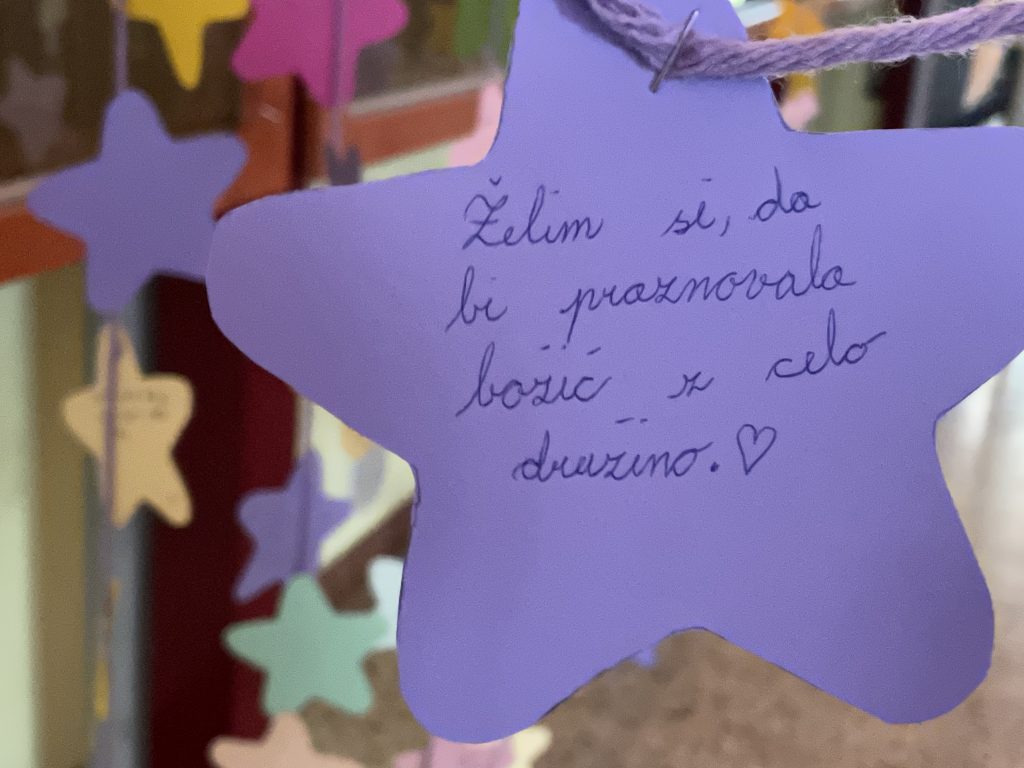 Želim si, da
bi praznovala
božič z celo
družino.♡